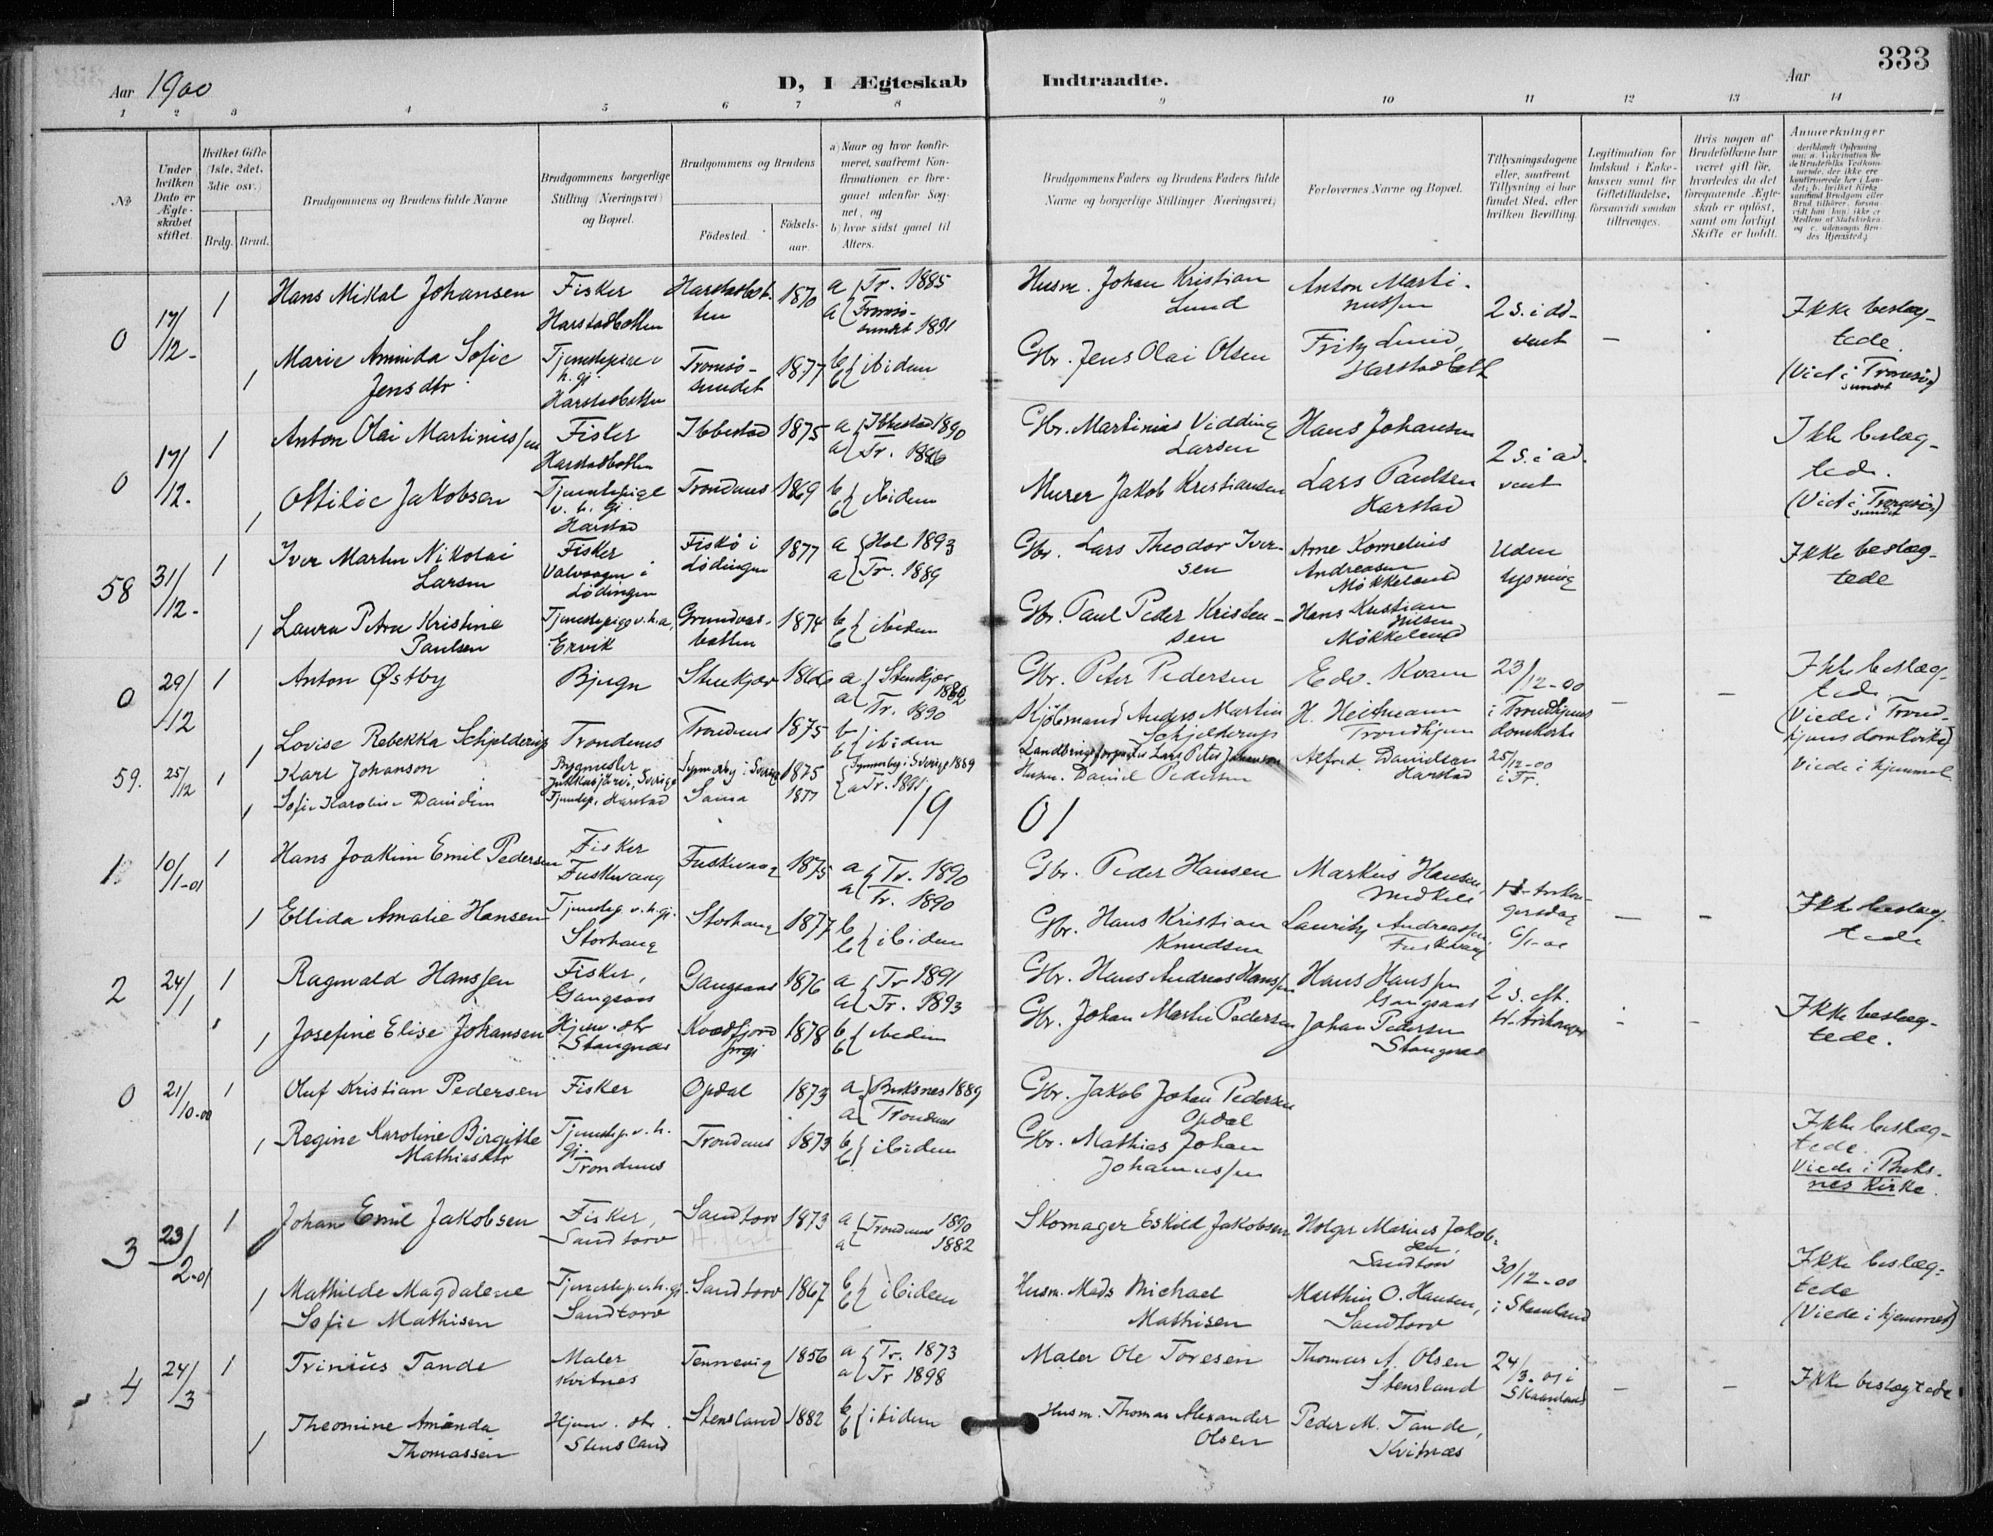 333
Aar 1900
D, I Ægteskab Indtraadte.
Aar
1 2 3 4 5 6 7 8 9 10 11 12 13 14
No
Under hvilken Dato er Ægteskabet stiftet.
Hvilket Gifte (1ste, 2det, 3die osv.)
Brdg. Brud.
Brudgommens og Brudens fulde Navne
Brudgommens borgerlige Stilling (Næringsvei) og Bopæl.
Brudgommens og Brudens
Födested.
Födselsaar.
a) Naar og hvor konfirmeret, saafremt Konfirmationen er foregaaet udenfor Sognet, og
b) hvor sidst gaaet til Alters.
Brudgommens Faders og Brudens Faders fulde Navne og borgerlige Stillinger (Næringsvei)
Forlovernes Navne og Bopæl.
Tillysningsdagene eller, saafremt Tillysning ei har fundet Sted, efter hvilken Bevilling.
Legitimation for Indskud i Enkekassen samt for Giftetilladelse, forsaavidt saadan tiltrænges.
Hvis nogen af Brudefolkene har været gift för, hvorledes da det foregaaende Ægteskab er oplöst, samt om lovligt Skifte er holdt.
Anmærkninger
0 17/12- 1 Hans Mikal Johansen Fisker Harstadbotten Harstadbotten 1870 a Tr. 1885 Husm. Johan Kristian Lund Anton Martinussen 2 s. i advent — Ikke beslægtede.
a Tromsösundet 1891
1 Marie Aminda Sofie Jensdtr Tjenestepige v. h. gj. Harstadbotten Tromsösundet 1877 b b ibidem Gbr. Jens Olai Olsen Fritz Lund, Harstadbott (Viet i Tromsösundet)
0 17/12. 1 Anton Olai Martiniussen Fisker Harstadbotten Ibbestad 1875 a Ibbestad 1890 a Tr. 1896 Gbr. Martinius Vidding Larsen Hans Johansen 2 s. i advent Ikke beslægtede.
1 Ottilie Jakobsen Tjenestepige v. h. gj. Harstad Trondenes 1869 b b ibidem Murer Jakob Kristiansen Lars Paulsen Harstad (Viet i Tromsösundet)
58 31/12- 1 Iver Martin Nikolai Larsen Fisker Valvaagen i Lödingen Fiskö i Lödingen 1877 a Hol 1893 a Tr. 1889 Gbr. Lars Theodor Iversen Arne Kornelius Andreasen Møkkeland Uden lysning Ikke beslægtede
1 Laura Petra Kristine Paulsen Tjenestepige v. h. a, Ervik Grundvasbotten 1874 b b ibidem Gbr. Paul Peder Kristensen Hans Kristian Nilsen Møkkeland
0 29/12 1 Anton Østby Bjugn Stenkjær 1866 a Stenkjær 1882 a Tr. 1890 Gbr. Peter Pedersen Edv. Kvam 23/12-00 — Ikke beslægtede
1 Lovise Rebekka Schjelderup Trondenes Trondenes 1875 b b ibidem Kjöbmand Anders Martin Schjelderup H. Heitmann Trondhjem i Trondhjems domkirke (Viede i Trondhjems domkirke)
59. 25/12 1 Karl Johanson Bygmester Jukkasjärvi, Sverige 1875 1889 Lars Peter Johanson Alfred Danielsen Harstad 25/12-00 i Tr. Viede i hjemmet.
1 Sofie Karoline Danielsen Tjenstep. Harstad Sama 1877 a Tr. 1891 Husm. Daniel Pedersen
1901
1 10/1-01 1 Hans Joakim Emil Pedersen Fisker Fuskevaag Fuskevaag 1875 a Tr. 1890 a Tr. 1890 Gbr. Peder Hansen Markus Hansen, H. trekongersdag 6/1-01 — - Ikke beslægtede
1 Ellida Amalie Hansen Tjenstep. v. h. gj. Storhaug Storhaug 1877 b b ibidem Gbr. Hans Kristian Knudsen Lauritz Andreassen Fuskevaag
2 24/1 1 Ragnvald Hanssen Fisker, Gangsaas Gangsaas 1876 a Tr 1891 a Tr. 1893 Gbr. Hans Andreas Hanssen Hans Hanssen Gangsaas 2 s. eft. H. trekonger - - Ikke beslægtede.
1 Josefine Elise Johansen Hjem. dtr Stangnæs Kvædfjord 1878 b b ibidem Gbr. Johan Martin Pedersen Johan Pedersen Stangnæs
0 21/10-00 1 Oluf Kristian Pedersen Fisker Opdal 1873 a Buksnes 1889 a Trondenes Gbr. Jakob Johan Pedersen Opdal Ikke beslægtede.
1 Regine Karoline Birgitte Mathiasdtr Tjenstep. v. h. gj. Trondenes Trondenes 1873 b b ibidem Gbr. Mathias Johan Johannessen Viede i Buksnes Kirke.
3 23/2-01 1 Johan Emil Jakobsen Fisker, Sandtorv Sandtorv 1873 a Trondenes 1890 a 1882 Skomager Eskild Jakobsen Holger Marius Jakobsen, Sandtorv 30/12-00 i Skaanland Ikke beslægtede
1 Mathilde Magdalene Sofie Mathisen Tjenestep. v. h. gj. Sandtorv Sandtorv 1867 b b ibidem Husm. Mads Michael Mathisen Marthin O. Hansen, Sandtorv (Viede i hjemmet)
4 24/3 1 Trinius Tande Maler Kvitnes Tennevig 1856 a Tr. 1873 a Tr 1898 Maler Ole Toresen Thomas A. Olsen Stensland 24/3-01 i Skaanland — - Ikke beslægtede
1 Theomine Amanda Thomassen Hjem. dtr. Stensland Stensland 1882 b b ibidem Husm. Thomas Alexander Olsen Peder M. Tande, Kvitnæs